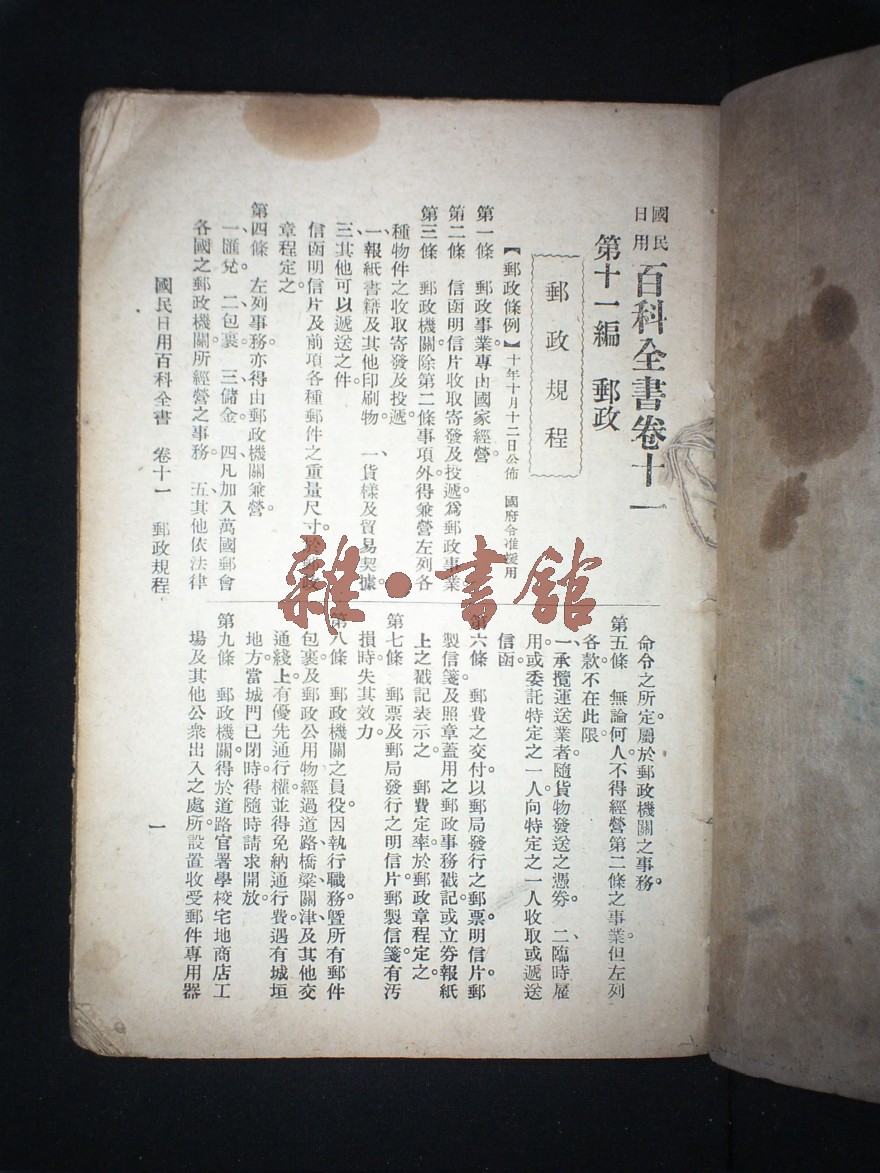 國民
日用
百科全書卷十一
第十一編　郵政
郵政規程
【郵政條例】十年十月十二日公佈　國府令准援用
第一條　郵政事業專由國家經營。
第二條　信函明信片收取寄發及投遞。爲郵政事業
第三條　郵政機關除第二條事項外。得兼營左列各
種物件之收取寄發及投遞。
一、報紙書籍及其他印刷物　一、貨樣及貿易契據。
三、其他可以遞送之件。
信函明信片及前項各種郵件之重量尺寸。於郵政
章程定之。
第四條　左列事務。亦得由郵政機關兼營。
一、匯兌　二、包裹　三、儲金。　四、凡加入萬國郵會
各國之郵政機關。所經營之事務。　五、其他依法律
國民日用百科全書　卷十一　郵政規程
命令之所定。屬於郵政機關之事務。
第五條　無論何人。不得經營第二條之事業。但左列
各款不在此限。
一、承攬運送業者。隨貨物發送之憑劵。　二、臨時雇
用。或委託特定之一人。向特定之一人收取或遞送
信函。
第六條　郵費之交付。以郵局發行之郵票。明信片。郵
製信箋。及照章蓋用之郵政事務戳記。或立劵報紙
上之戳記表示之。　郵費定率。於郵政章程定之。
第七條　郵票及郵局發行之明信片。郵製信箋。有汚
損時。失其效力。
第八條　郵政機關之員役。因執行職務。曁所有郵件
包裹及郵政公用物。經過道路、橋梁、關津、及其他交
通綫上。有優先通行權。並得免納通行費。遇有城垣
地方。當城門已閉時。得隨時請求開放。
第九條　郵政機關。得於道路官署學校宅地商店工
場及其他公衆出入之處所。設置收受郵件專用器
一
雜·書館